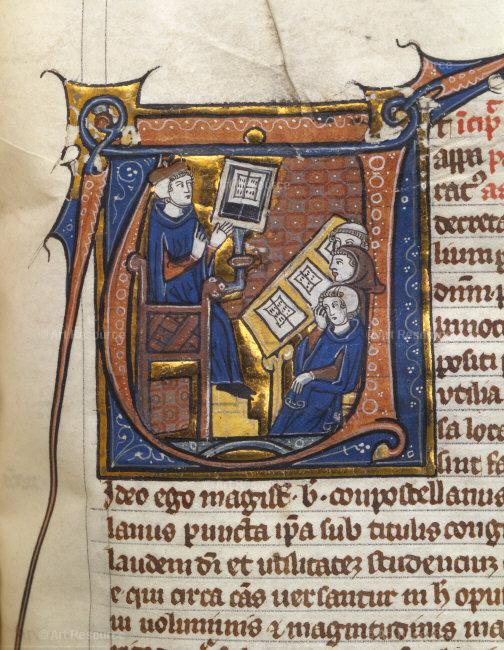 t̄ icip̄
appa p
rat⁹ a
decreta
lium p
dn̄ni
innot
positi p
utilia
sa loca
sint sa
Ideo ego magisť. b. conpostellanu
lanus puncta ip̄a sub titulis cong
laudem dī et utilitatez studenciuz
e qui circa cās uersantur in h̄ opu
in uoluminis ⁊ magnitudinis ma
© Art Resource